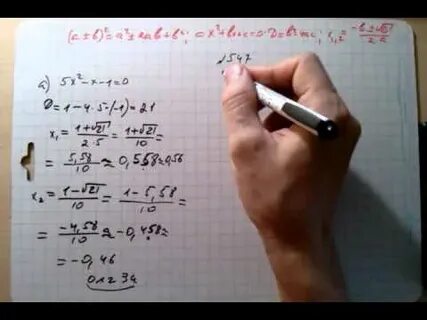 (a±b)²=a²±2ab+b²; ax²+bx+c=0. D=b²-4ac; x₁,₂=(-b±√D)/2a
№547
а) 5x²-x-1=0
D=1-4·5·(-1)=21
x₁=(1+√21)/(2·5)=(1+√21)/10=
=5,58/10≈0,558≈0,56
x₂=(1-√21)/10=(1-5,58)/10=
=-4,58/10≈-0,458≈
≈-0,46
01234